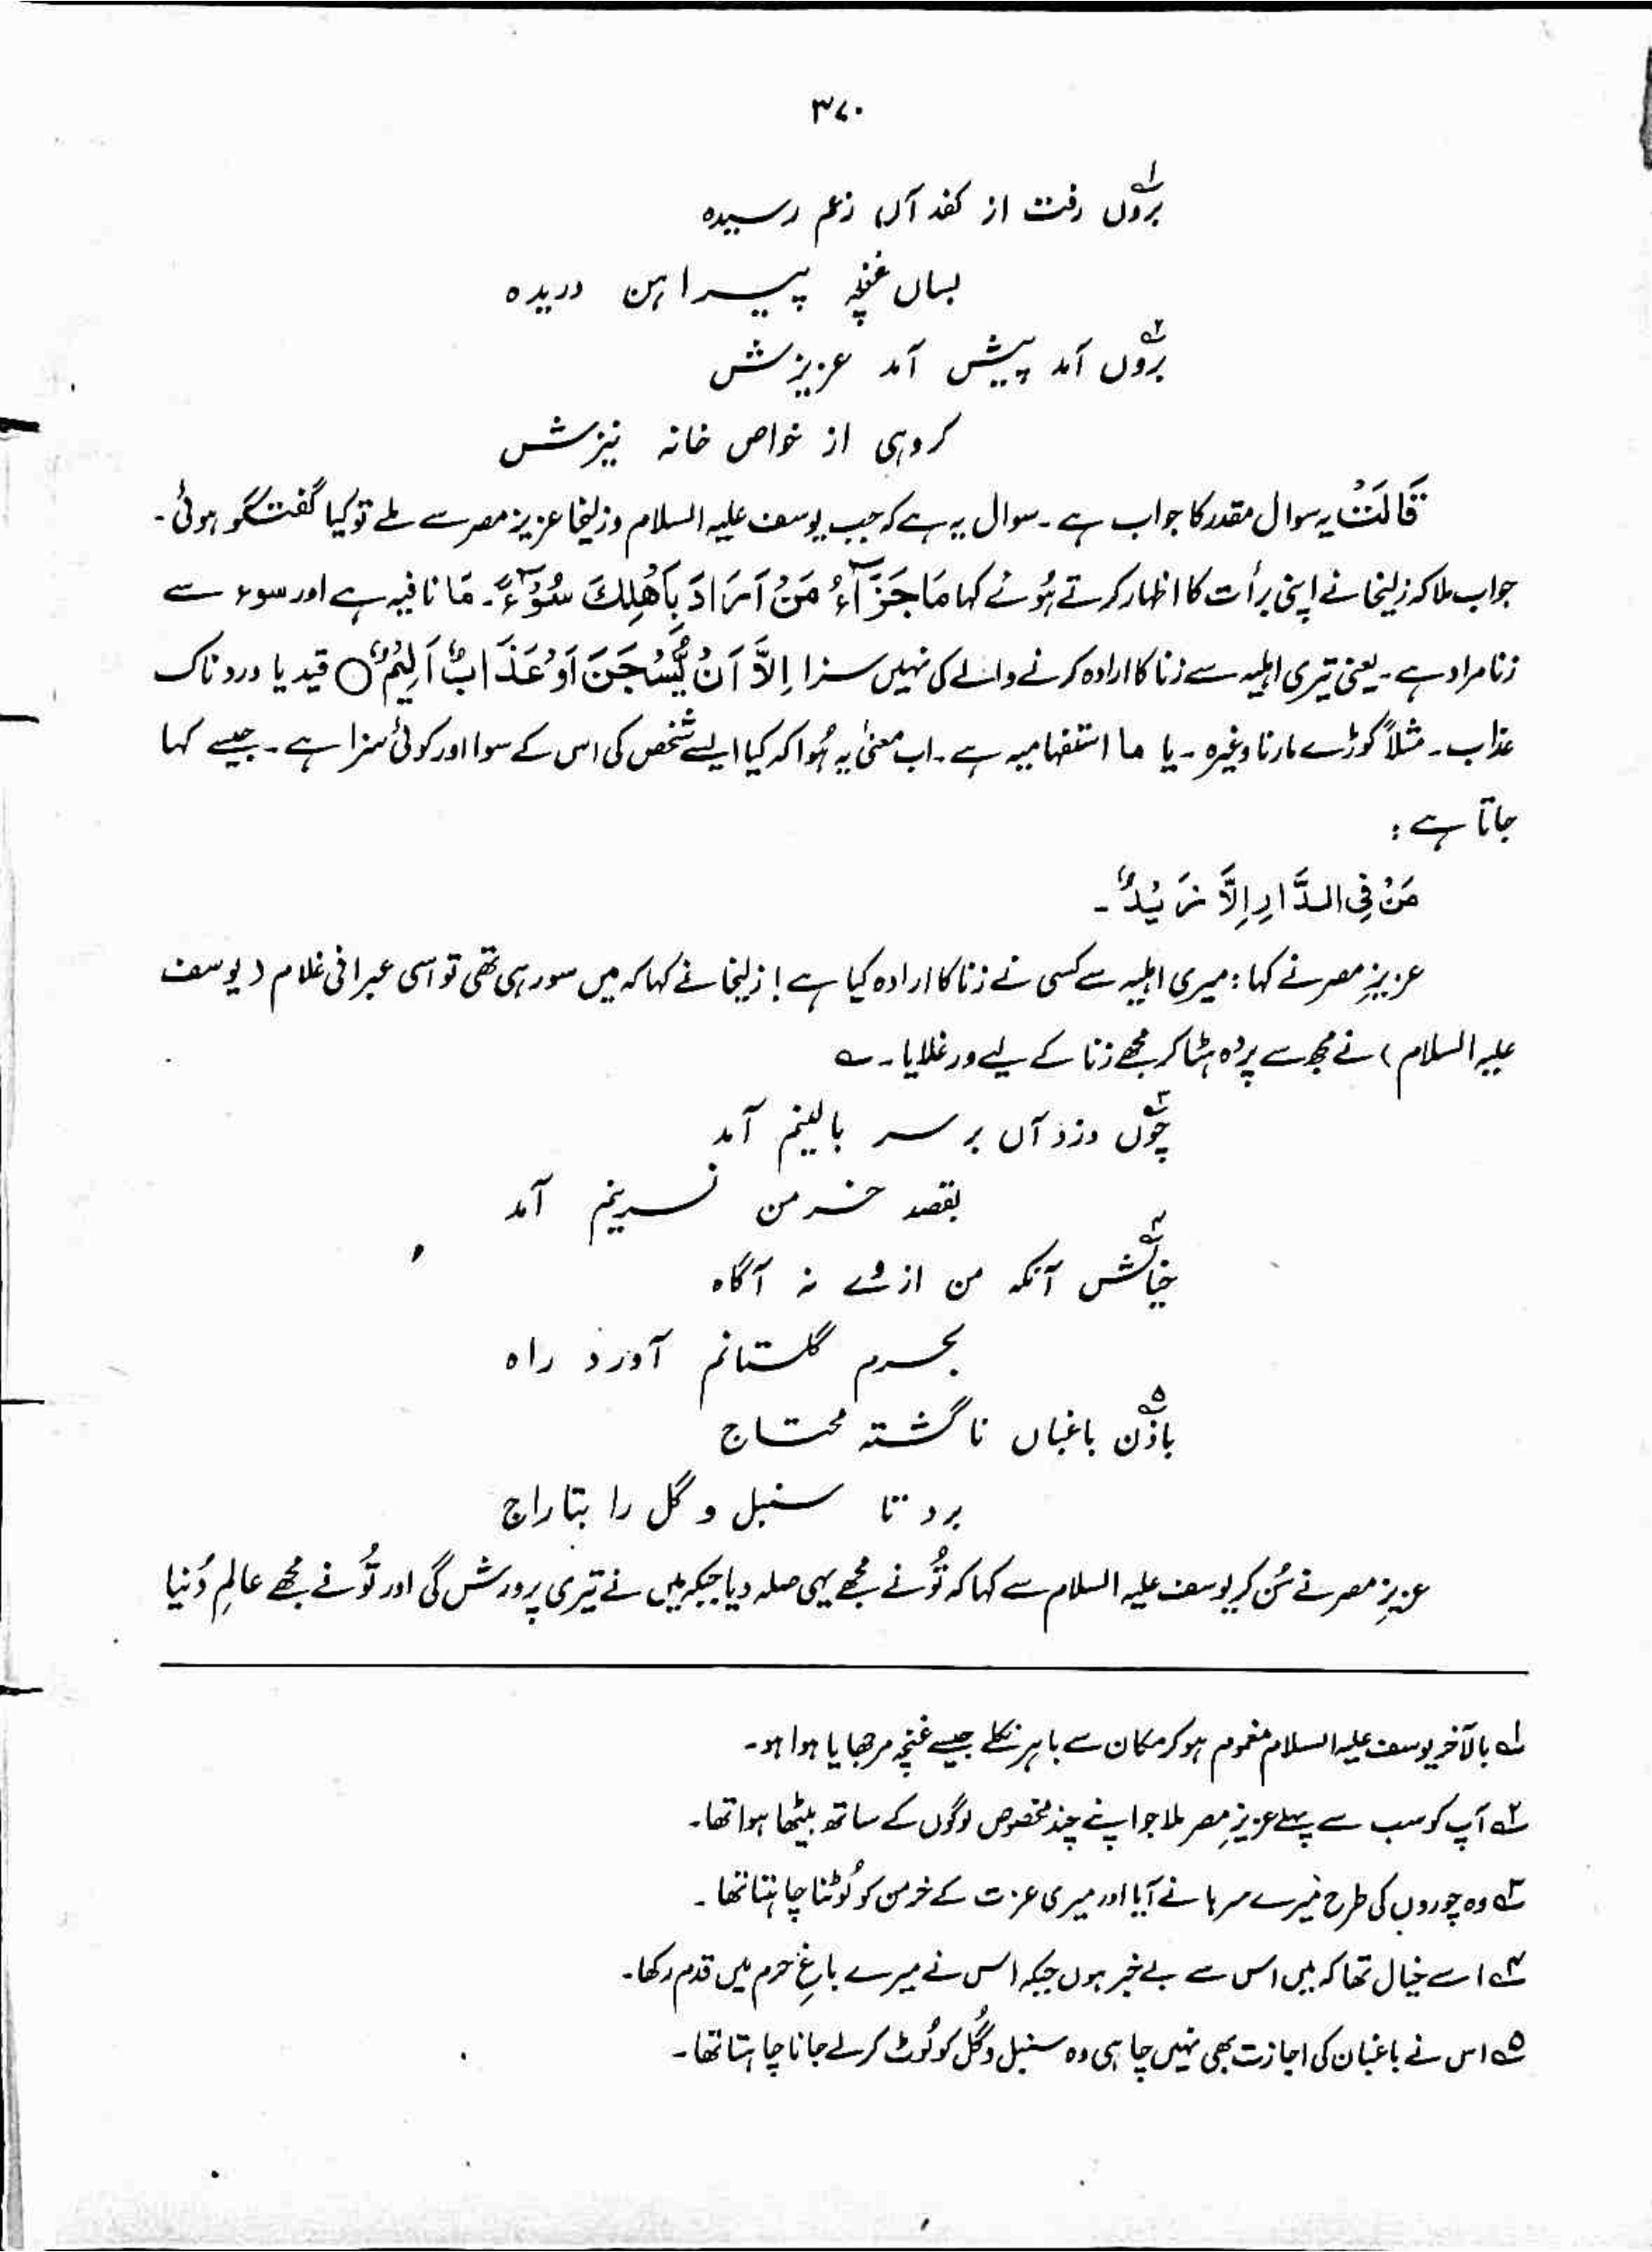 ۳۷۰
۱؎ بروں رفت از کفد آں زغم رسیدہ
بساں غنچہ پیراہن دریدہ
۲؎ بروں آمد پیش آمد عزیزش
گروہی از خواص خانہ نیزش
قَالَتْ یہ سوال مقدر کا جواب ہے ۔ سوال یہ ہے کہ جب یوسف علیہ السلام و زلیخا عزیز مصر سے ملے تو کیا گفتگو ہوئی ۔
جواب ملا کہ زلیخا نے اپنی برأت کا اظہار کرتے ہُوئے کہا مَا جَزَآءُ مَنْ اَرَادَ بِاَهْلِكَ سُوْٓءًا۔ مَا نافیہ ہے اور سوء سے
زنا مراد ہے ۔ یعنی تیری اہلیہ سے زنا کا ارادہ کرنے والے کی نہیں سزا اِلَّآ اَنْ يُّسْجَنَ اَوْ عَذَابٌ اَلِيْمٌ○ قید یا دردناک
عذاب ۔ مثلاً کوڑے مارنا وغیرہ ۔ یا ما استفہامیہ ہے ۔ اب معنیٰ یہ ہُوا کہ کیا ایسے شخص کی اس کے سوا اور کوئی سزا ہے ۔ جیسے کہا
جاتا ہے :
مَنْ فِی الدَّارِ اِلَّا زَیْدٌ ۔
عزیزِ مصر نے کہا : میری اہلیہ سے کسی نے زنا کا ارادہ کیا ہے ! زلیخا نے کہا کہ میں سو رہی تھی تو اسی عبرانی غلام ( یوسف
علیہ السلام ) نے مجھ سے پردہ ہٹا کر مجھے زنا کے لیے ورغلایا ۔ ؎
۳؎ چوں دزد آں بر سر بالینم آمد
بقصد خرمن نسرینم آمد
۴؎ خیالش آنکہ من از وے نہ آگاہ
بحرم گلستانم آورد راہ
۵؎ باذن باغباں نا گشتہ محتاج
برد تا سنبل و گل را بتاراج
عزیزِ مصر نے سُن کر یوسف علیہ السلام سے کہا کہ تُو نے مجھے یہی صلہ دیا جبکہ میں نے تیری پرورش کی اور تُو نے مجھے عالمِ دُنیا
۱؎ بالآخر یوسف علیہ السلام مغموم ہو کر مکان سے باہر نکلے جیسے غنچہ مرجھایا ہوا ہو ۔
۲؎ آپ کو سب سے پہلے عزیزِ مصر ملا جو اپنے چند مخصوص لوگوں کے ساتھ بیٹھا ہوا تھا ۔
۳؎ وہ چوروں کی طرح میرے سرہانے آیا اور میری عزت کے خرمن کو لُوٹنا چاہتا تھا ۔
۴؎ اسے خیال تھا کہ میں اس سے بے خبر ہوں جبکہ اس نے میرے باغِ حرم میں قدم رکھا ۔
۵؎ اس نے باغبان کی اجازت بھی نہیں چاہی وہ سنبل و گُل کو لُوٹ کر لے جانا چاہتا تھا ۔